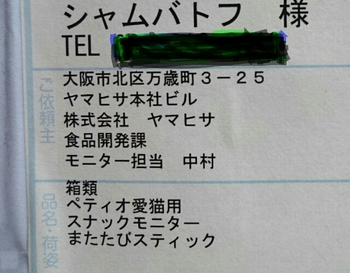 シャムバトフ 様
TEL
ご依頼主
大阪市北区万歳町3－25
ヤマヒサ本社ビル
株式会社 ヤマヒサ
食品開発課
モニター担当 中村
品名・荷姿
箱類
ペティオ愛猫用
スナックモニター
またたびスティック